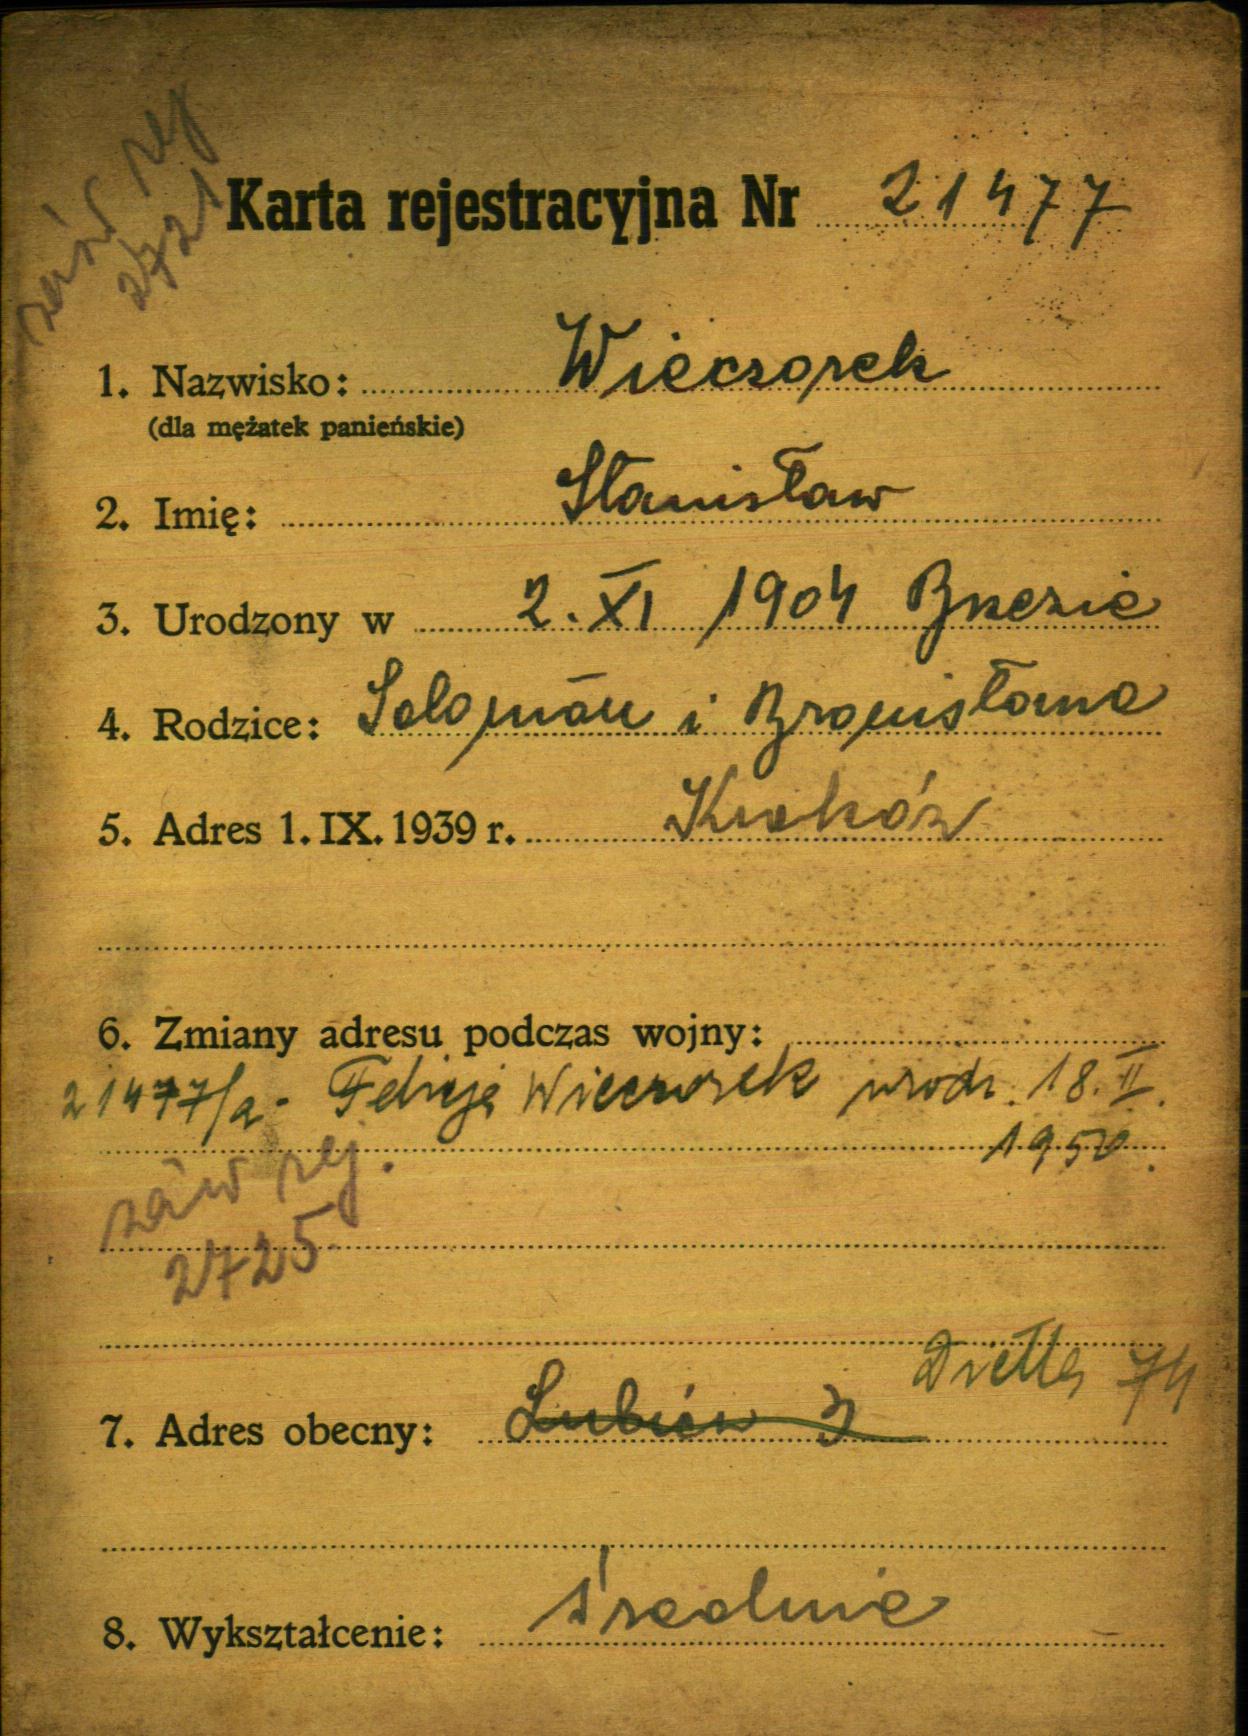 zaśw rej
2721
Karta rejestracyjna Nr 21477
1. Nazwisko: Wieczorek
(dla mężatek panieńskie)
2. Imię: Stanisław
3. Urodzony w 2. XI 1904 Brzezie
4. Rodzice: Salomon i Bronisława
5. Adres 1. IX. 1939 r. Kraków
6. Zmiany adresu podczas wojny:
21477/a - Felicja Wieczorek urodz. 18. II.
1950.
zaśw rej.
2725
Dietla 74
7. Adres obecny: Lubicz 3
8. Wykształcenie: średnie